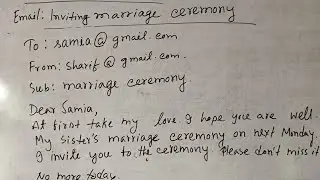 Email: Inviting marriage ceremony
To: samia@gmail.com
From: sharif@gmail.com
Sub: marriage ceremony.
Dear Samia,
At first take my love. I hope you are well.
My sister's marriage ceremony on next Monday.
I invite you to the ceremony. Please don't miss it
No more today.